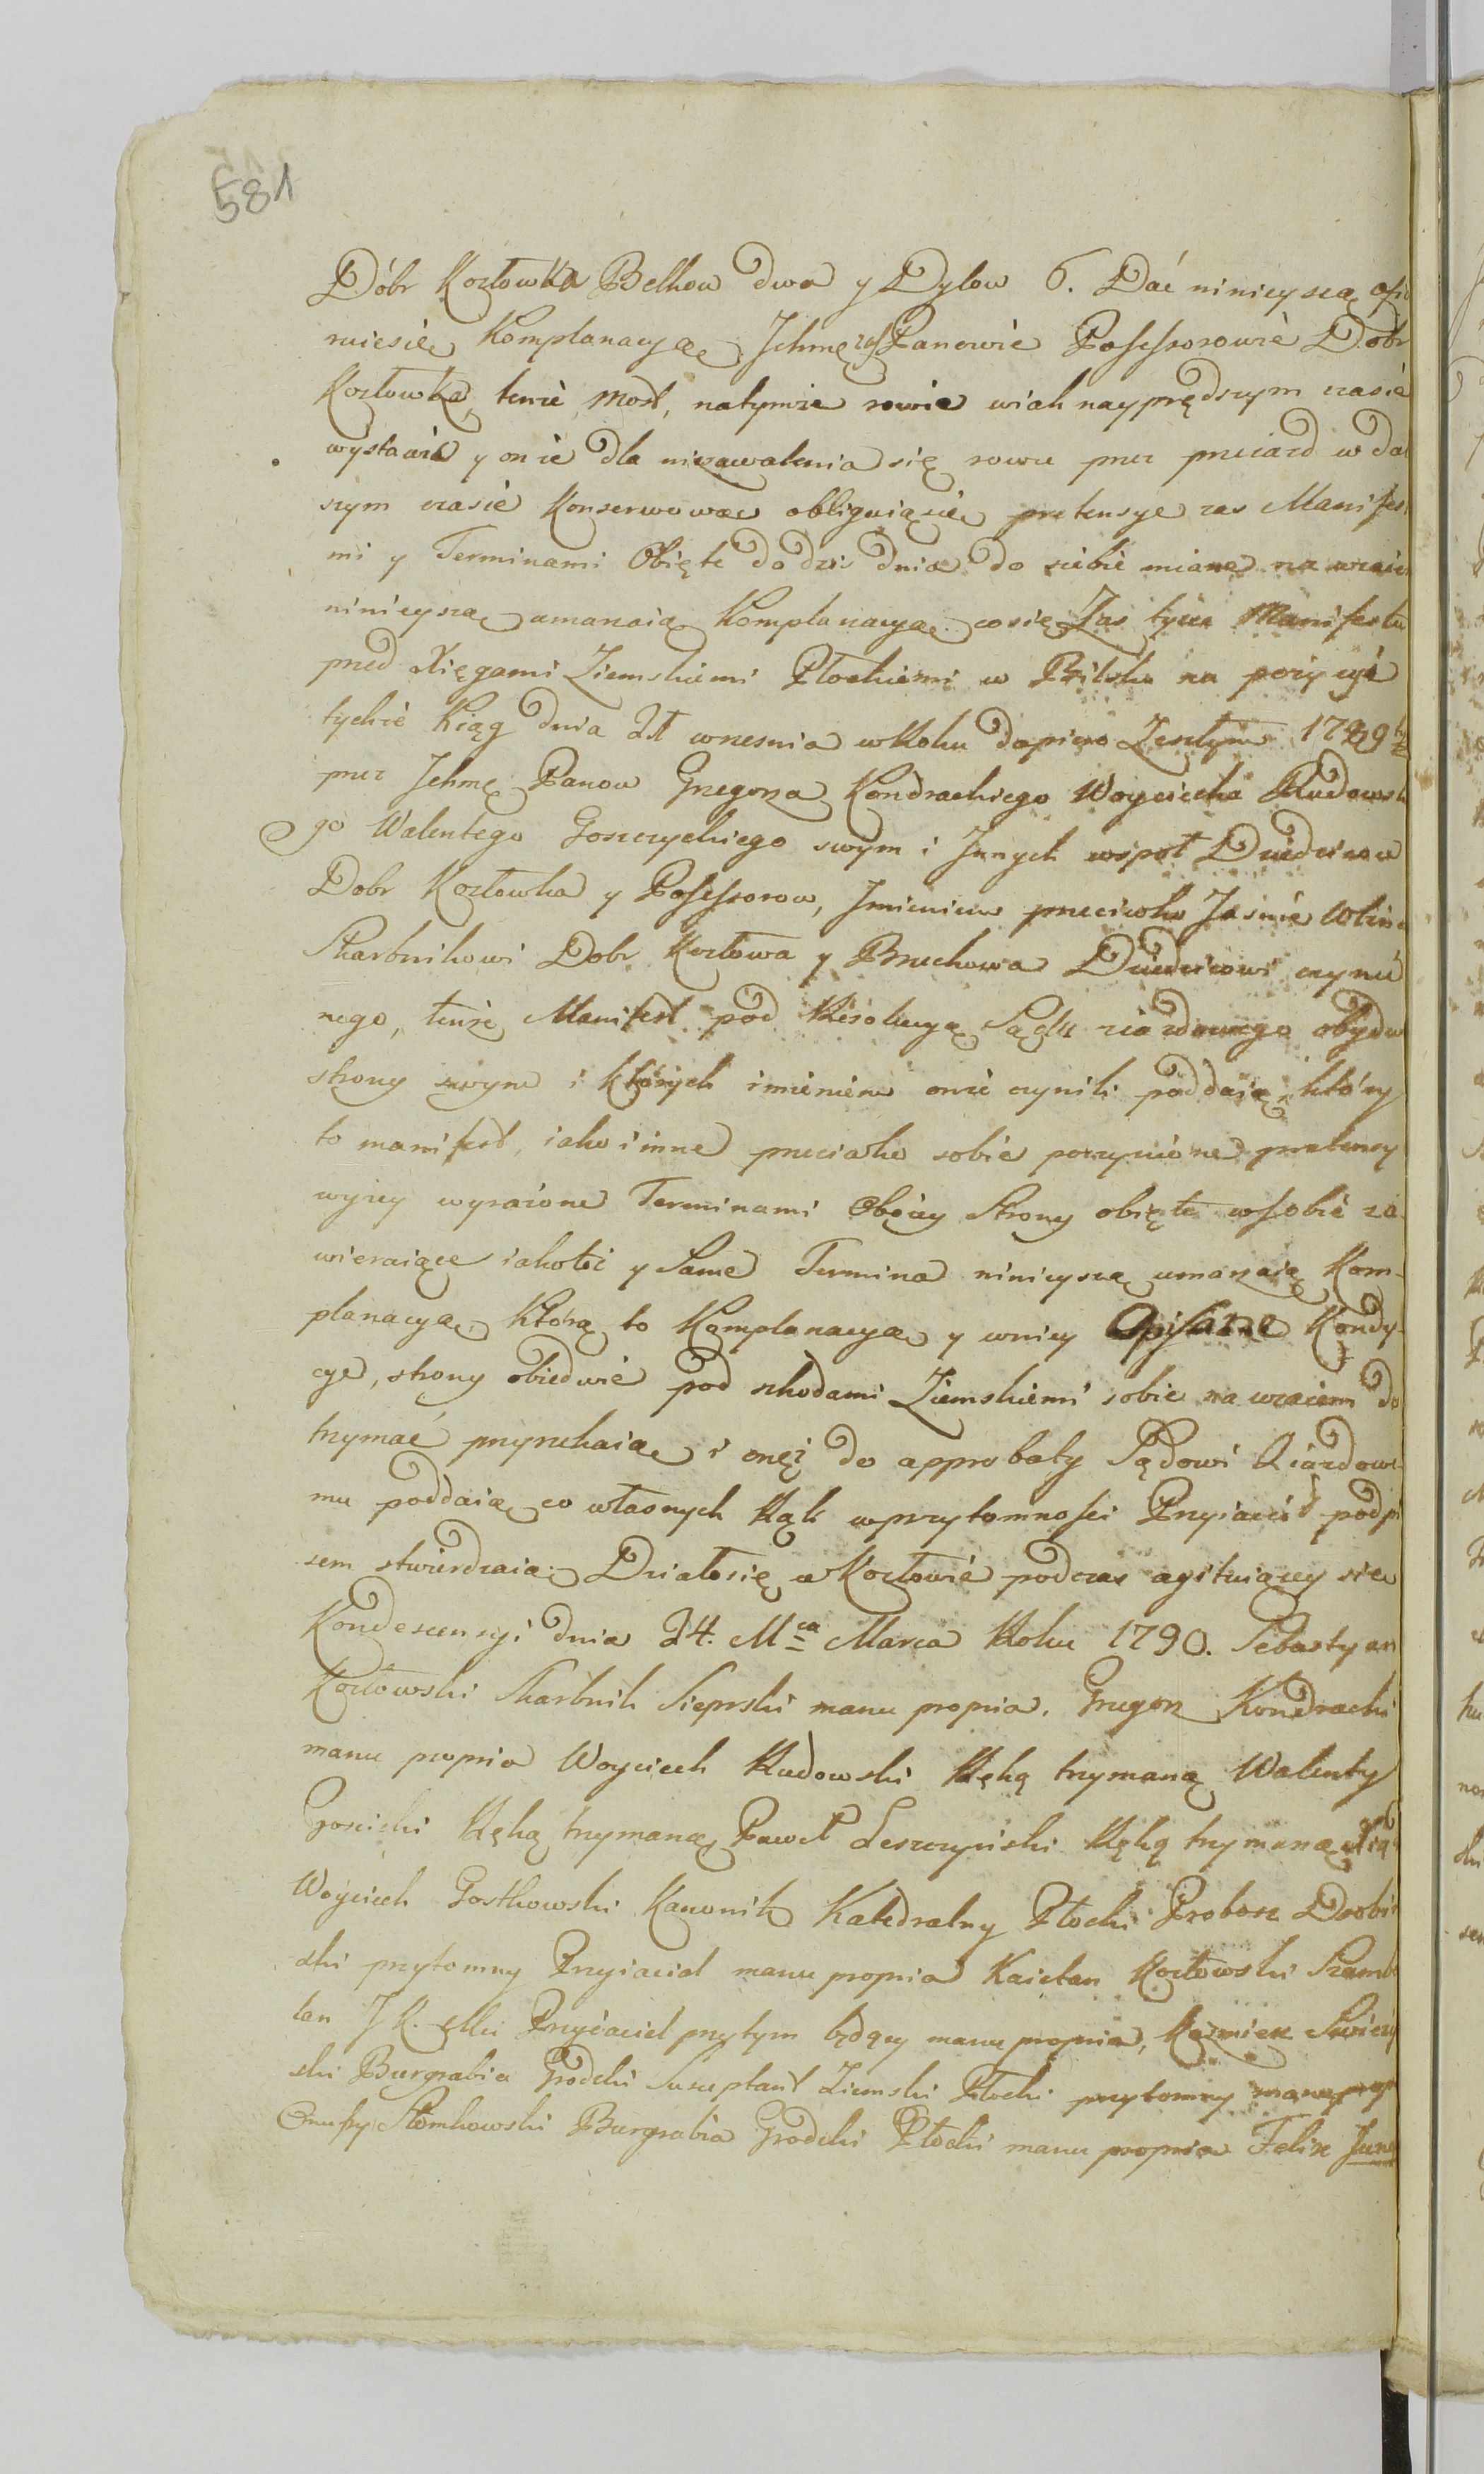 581
Dóbr Kozłowka Belkow dwa y Dylow 6. Dać ninieyszą ofia
ruiesię Komplanacyą Ichmę zaś Panowie Possessorowie Dobr
Kozłowka, tenże most, natymże rowie wiak nayprędszym czasie
wystawić y onże dla niezawalenia się rowu przez przeiazd w dal
szym czasie Konserwować obliguiąsię, pretensye zas Manifes
mi y Terminami Obięte do dziś dnia do siebie miane na wzaiem
ninieyszą umarzaią Komplanacyą. cosię Zas tycze Manifestu
przed Xięgami Ziemskiemi Płockiemi w Bilsku na pozycyi
tychże Xiąg dnia 21 wrzesnia wRoku dopiero Zeszłym 1789
przez Ichmę Panow Grzegorza Kondrackiego Woyciecha Rudowski
go Walentego Goszczyckiego swym i Innych wspoł Dziedzicow
Dobr Kozłowka y Possessorow, Imieniem przeciwko Jasnie Wlzn
Skarbnikowi Dobr Kozłowa y Bruchowa Dziedzicowi czynio
nego, tenże Manifest pod Rezolucyą Sądu ziazdowego obydw
strony swym i których imieniem onże czynili poddaią, który
to manifest, iako i inne przeciwko sobie poczynione pretensy
wyżey wyrażone Terminami Obóiey Strony obięte wsobie za
wieraiące iakoteż y Same Termina ninieyszą umarzaią Kom-
planacyą, Którą to Komplanacyą y wniey Opisane Kondy-
cye, strony obiedwie pod szkodami Ziemskiemi sobie na wzaiem do
trzymać przyrzekaią i onęż do approbaty Sądowi Ziazdowe
mu poddaią co własnych Rąk wprzytomności Przyiaciół podpi
sem stwierdzaią. Działosię w Kozłowie podczas agituiącey się
Kondescensyi dnia 24. Mca Marca Roku 1790. Sebastyan
Kozłowski Skarbnik Sieprski manu propria. Grzegorz Kondracki
manu propria Woyciech Rudowski Ręką trzymaną Walenty
Gosicki Ręką trzymaną Paweł Leszczyński Ręką trzymaną Xią
Woyciech Gostkowski Kanonik Katedralny Płocki Probosz Drobi
ski przytomny Przyiaciel manu propria Kaietan Kozłowski Szambe
lan J K. Mci Przyiaciel przytym będący manu propria, Kazmierz Swiecz
ski Burgrabia Grodzki Susceptant Ziemski Płocki przytomny manu prop
Onufry Słomkowski Burgrabia Grodzki Płocki manu propria Felix